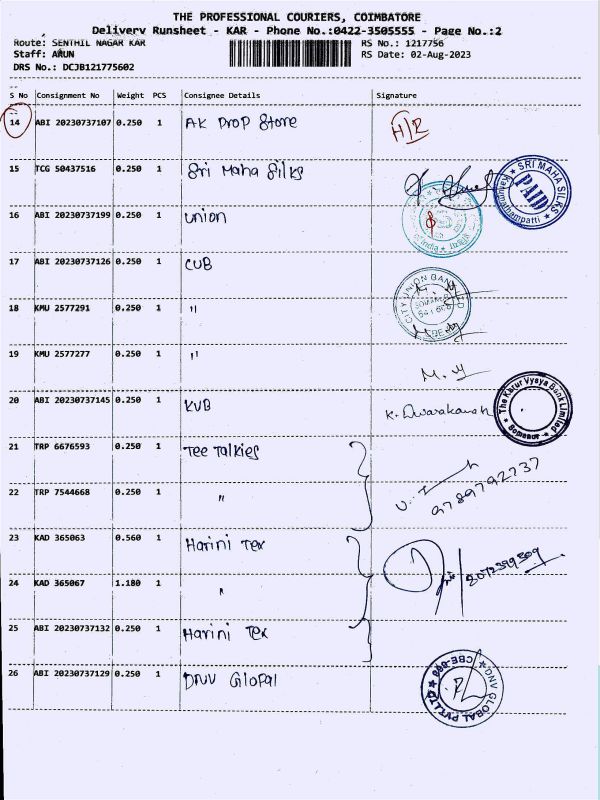 THE PROFESSIONAL COURIERS, COIMBATORE
Delivery Runsheet - KAR - Phone No.:0422-3505555 - Page No.:2
Route: SENTHIL NAGAR KAR
RS No.: 1217756
Staff: ARUN
RS Date: 02-Aug-2023
DRS No.: DCJB121775602
S No Consignment No Weight PCS Consignee Details Signature
14 ABI 20230737107 0.250 1 AK Drop Store H/R
15 TCG 50437516 0.250 1 Sri Maha Silks
SRI MAHA SILKS
PAID
16 ABI 20230737199 0.250 1 union
17 ABI 20230737126 0.250 1 CUB
CITY UNION BANK
18 KMU 2577291 0.250 1 "
19 KMU 2577277 0.250 1 "
20 ABI 20230737145 0.250 1 KVB
The Karur Vysya Bank Limited
21 TRP 6676593 0.250 1 Tee Talkies
22 TRP 7544668 0.250 1 "
9789792737
23 KAD 365063 0.560 1 Harini Tex
24 KAD 365067 1.180 1 "
25 ABI 20230737132 0.250 1 Harini Tex
26 ABI 20230737129 0.250 1 DNV Glopal
DNV GLOBAL PVT LTD